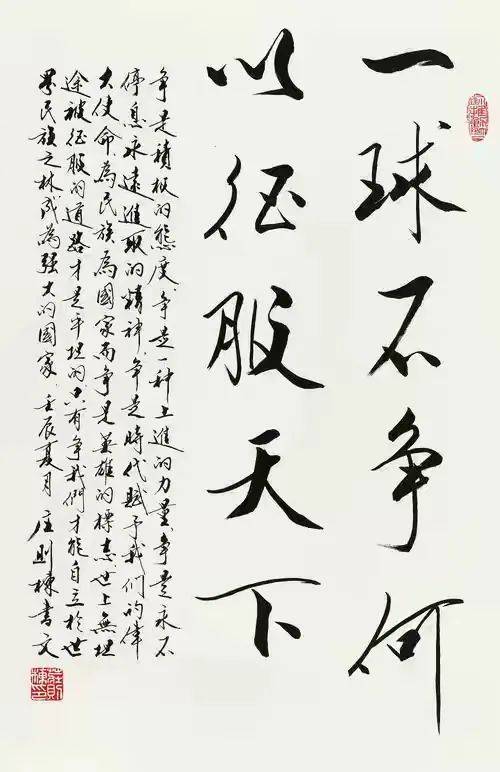 一球不争何
以征服天下
争是積极的態度争是一种上進的力量争是永不
停息永遠進取的精神争是時代賦予我们的偉
大使命為民族為國家而争是英雄的標志世上無坦
途被征服的道路才是平坦的只有争我們才能自立於世
界民族之林成為强大的國家 壬辰夏月 庄則棟書文
莊則棟印